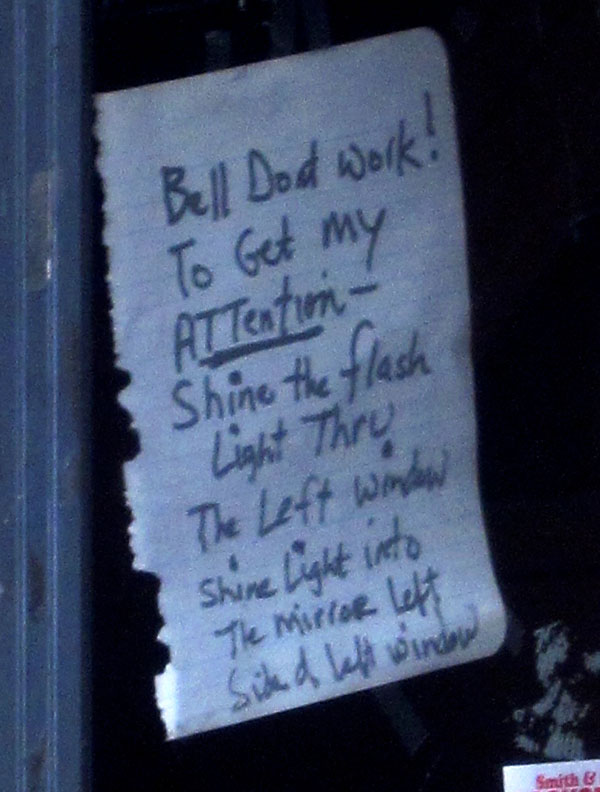 Bell Dont work!
To Get my
ATTention —
Shine the flash
Light Thru
The Left window
shine Light into
The mirror left
Side of left window
Smith &